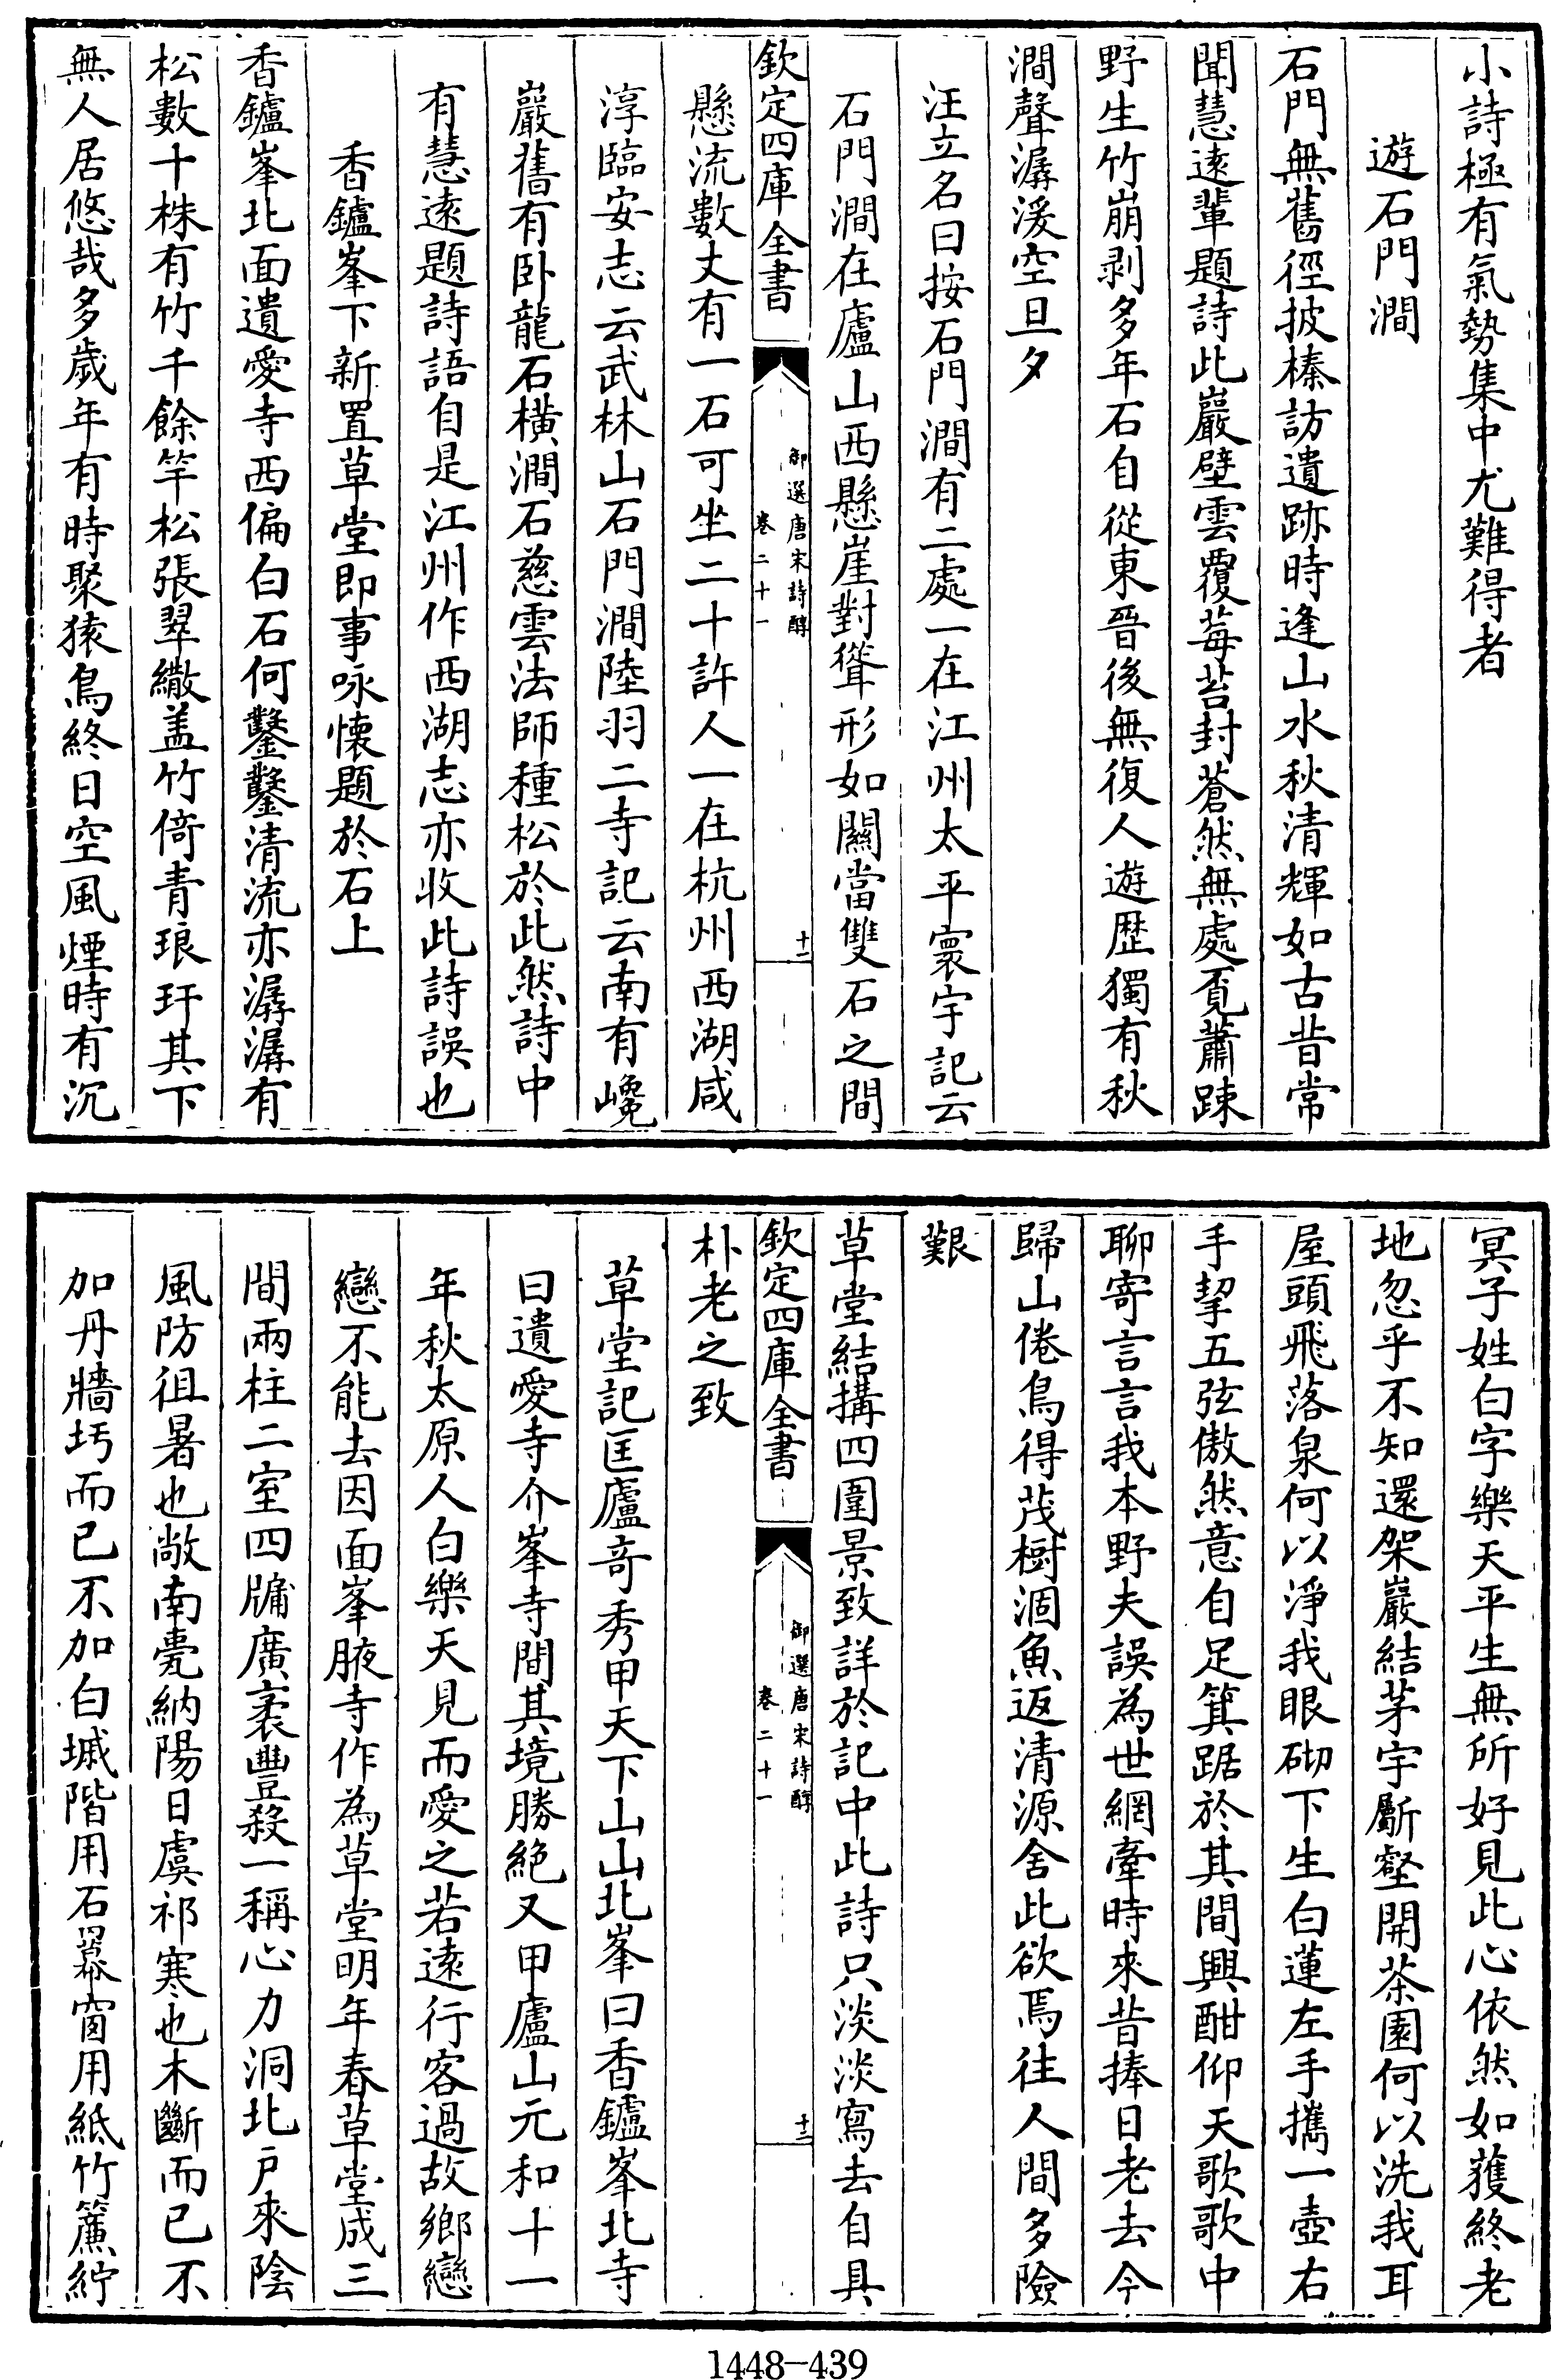 小詩極有氣勢集中尤難得者
遊石門澗
石門無舊徑披榛訪遺跡時逢山水秋清輝如古昔常
聞慧遠輩題詩此巖壁雲覆莓苔封蒼然無處覓蕭踈
野生竹崩剥多年石自從東晉後無復人遊歴獨有秋
澗聲潺湲空旦夕
汪立名曰按石門澗有二處一在江州太平寰宇記云
石門澗在廬山西懸崖對聳形如闕當雙石之間
欽定四庫全書
御選唐宋詩醇
卷二十一
十一
懸流數丈有一石可坐二十許人一在杭州西湖咸
淳臨安志云武林山石門澗陸羽二寺記云南有巉
巖舊有卧龍石橫澗石慈雲法師種松於此然詩中
有慧遠題詩語自是江州作西湖志亦收此詩誤也
香鑪峯下新置草堂即事咏懷題於石上
香鑪峯北面遺愛寺西偏白石何鑿鑿清流亦潺潺有
松數十株有竹千餘竿松張翠繖盖竹倚青琅玕其下
無人居悠哉多歲年有時聚猿鳥終日空風煙時有沉
冥子姓白字樂天平生無所好見此心依然如獲終老
地忽乎不知還架巖結茅宇斸壑開茶園何以洗我耳
屋頭飛落泉何以淨我眼砌下生白蓮左手攜一壺右
手挈五弦傲然意自足箕踞於其間興酣仰天歌歌中
聊寄言言我本野夫誤為世網牽時來昔捧日老去今
歸山倦鳥得茂樹涸魚返清源舍此欲焉往人間多險
艱
草堂結搆四圍景致詳於記中此詩只淡淡寫去自具
欽定四庫全書
御選唐宋詩醇
卷二十一
十二
朴老之致
草堂記匡廬竒秀甲天下山山北峯曰香鑪峯北寺
曰遺愛寺介峯寺間其境勝絶又甲廬山元和十一
年秋太原人白樂天見而愛之若遠行客過故鄉戀
戀不能去因面峯腋寺作為草堂明年春草堂成三
間兩柱二室四牖廣袤豐殺一稱心力洞北戶來陰
風防徂暑也敞南甍納陽日虞祁寒也木斷而已不
加丹牆圬而已不加白墄階用石冪窗用紙竹簾紵
1448-439